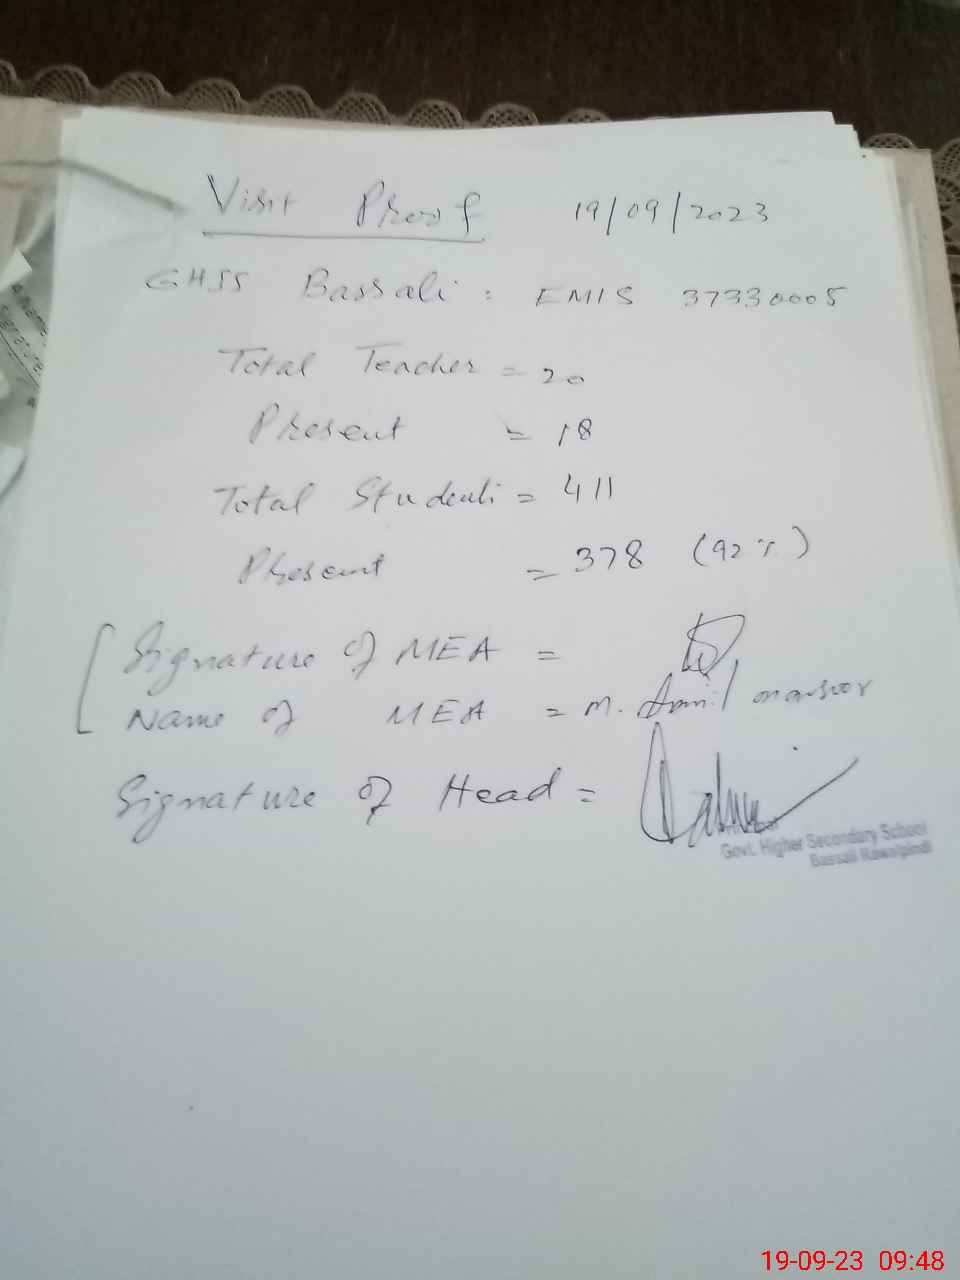 Visit Proof 19/09/2023
GHSS Bassali : EMIS 37330005
Total Teacher = 20
Present = 18
Total Students = 411
Present = 378 (92%)
Signature of MEA =
Name of MEA = M.
Signature of Head =
Govt. Higher Secondary School
Bassali Rawalpindi
Signature
19-09-23 09:48